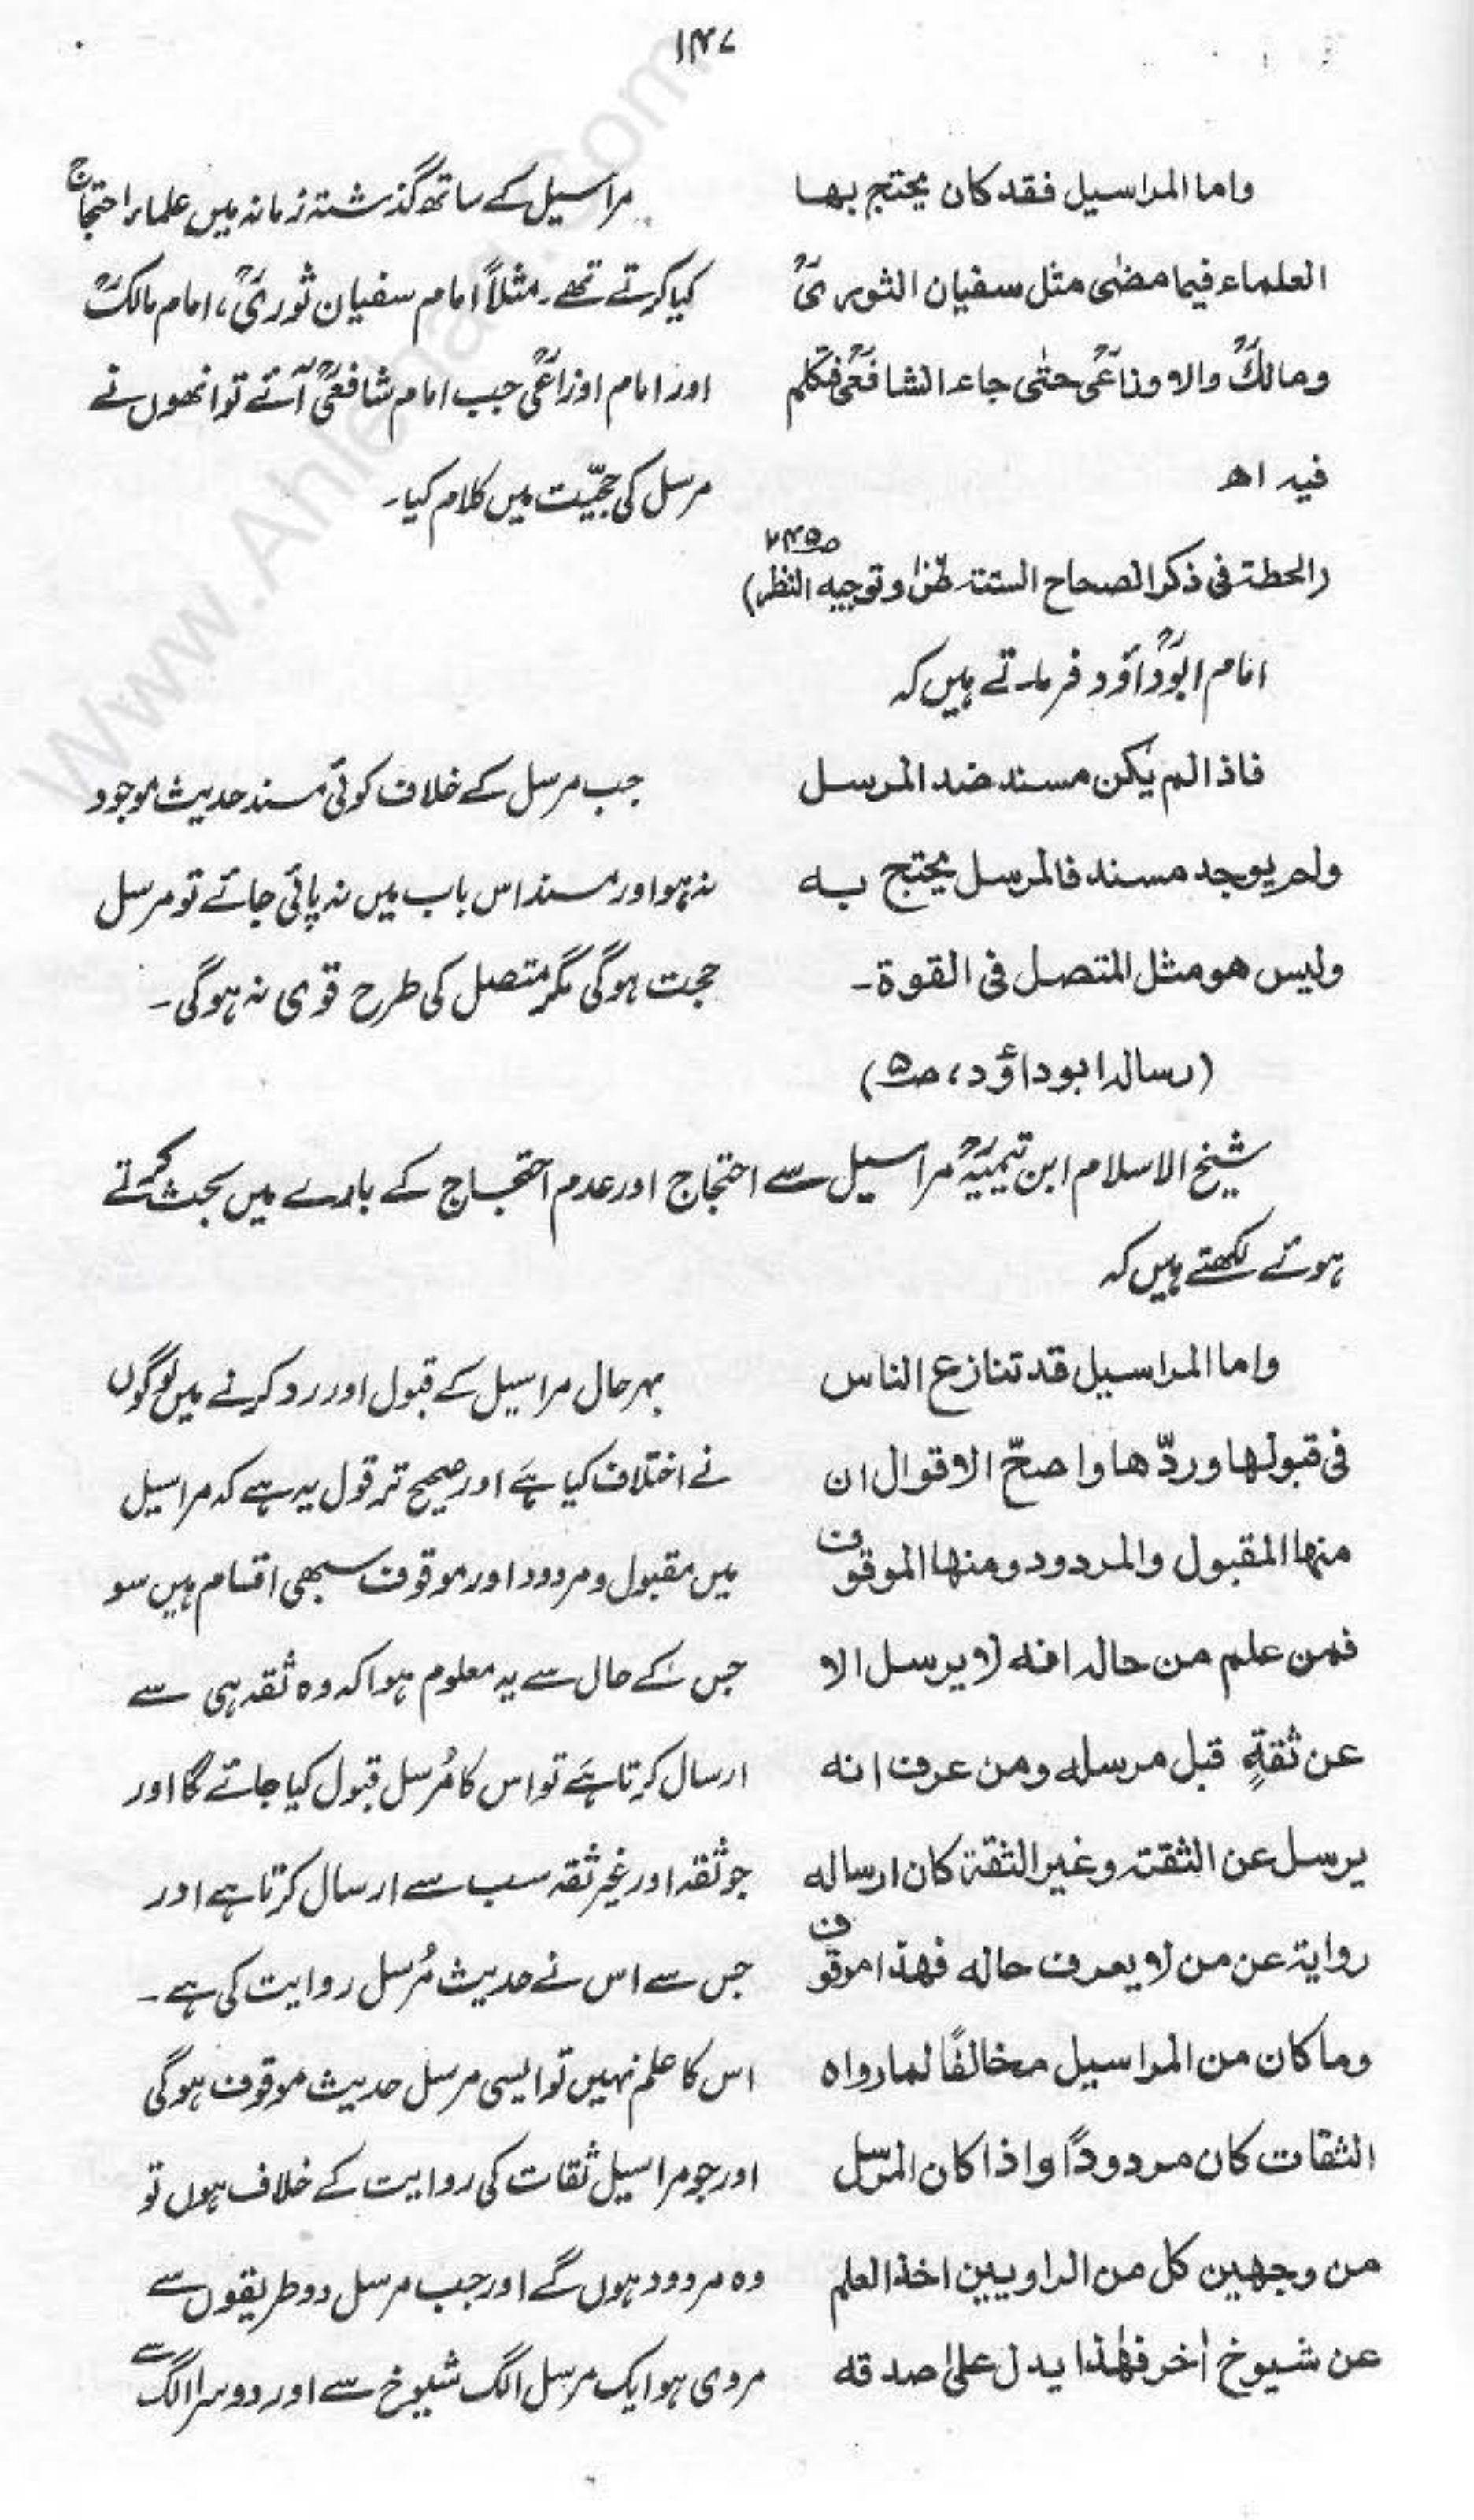 ۱۴۷
واما المراسیل فقد کان یحتج بہا
العلماء فیما مضی مثل سفیان الثوریؒ
ومالکؒ والاوزاعیؒ حتٰی جاء الشافعیؒ فکلم
فیہ اھ
مراسیل کے ساتھ گذشتہ زمانہ میں علماء احتجاج
کیا کرتے تھے۔ مثلاً امام سفیان ثوریؒ، امام مالکؒ
اور امام اوزاعیؒ جب امام شافعیؒ آئے تو انھوں نے
مرسل کی حجیّت میں کلام کیا۔
(الحطۃ فی ذکر الصحاح الستۃ وتوجیہ النظر ص۲۴۵)
امام ابوداؤدؒ فرماتے ہیں کہ
فاذا لم یکن مسند ضد المرسل
ولم یوجد مسند فالمرسل یحتج بہ
ولیس ھو مثل المتصل فی القوۃ۔
جب مرسل کے خلاف کوئی مسند حدیث موجود
نہ ہو اور مسند اس باب میں نہ پائی جائے تو مرسل
حجت ہوگی مگر متصل کی طرح قوی نہ ہوگی۔
(رسالہ ابوداؤد، ص۵)
شیخ الاسلام ابن تیمیہؒ مراسیل سے احتجاج اور عدم احتجاج کے بارے میں بحث کرتے
ہوئے لکھتے ہیں کہ
واما المراسیل قد تنازع الناس
فی قبولھا وردّھا واصحّ الاقوال ان
منھا المقبول والمردود ومنھا الموقوف
فمن علم من حالہ انہ لا یرسل الا
عن ثقۃٍ قبل مرسلہ ومن عرف انہ
یرسل عن الثقۃ وغیر الثقۃ کان ارسالہ
روایۃ عن من لا یعرف حالہ فھذا موقوف
وما کان من المراسیل مخالفًا لما رواہ
الثقات کان مردودًا واذا کان المرسل
من وجھین کل من الراویین اخذ العلم
عن شیوخ اٰخر فھٰذا یدل علیٰ صدقہ
بہرحال مراسیل کے قبول اور رد کرنے میں لوگوں
نے اختلاف کیا ہے اور صحیح تر قول یہ ہے کہ مراسیل
میں مقبول و مردود اور موقوف سبھی اقسام ہیں سو
جس کے حال سے یہ معلوم ہوا کہ وہ ثقہ ہی سے
ارسال کرتا ہے تو اس کا مُرسل قبول کیا جائے گا اور
جو ثقہ اور غیر ثقہ سب سے ارسال کرتا ہے اور
جس سے اس نے حدیث مُرسل روایت کی ہے۔
اس کا علم نہیں تو ایسی مرسل حدیث موقوف ہوگی
اور جو مراسیل ثقات کی روایت کے خلاف ہوں تو
وہ مردود ہوں گے اور جب مرسل دو طریقوں سے
مروی ہو ایک مرسل الگ شیوخ سے اور دوسرا الگ سے